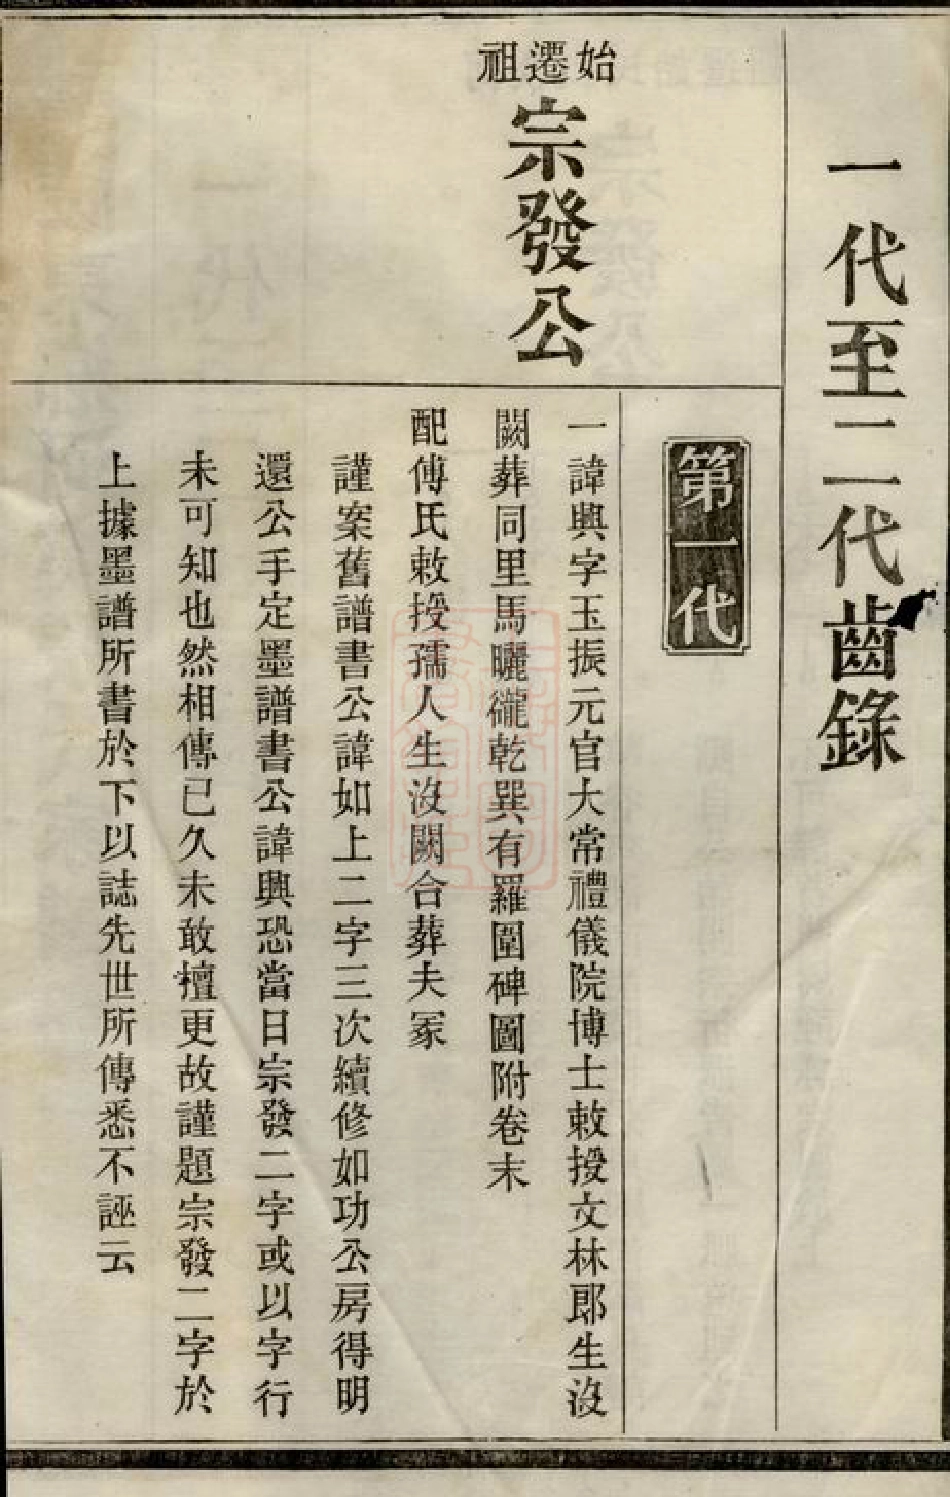 一代至二代齒錄
第一代
始遷祖
宗發公
一諱輿字玉振元官大常禮儀院博士敕授文林郎生沒
闕葬同里馬曬巃乾巽有羅圍碑圖附卷末
配傅氏敕授孺人生沒闕合葬夫冢
謹案舊譜書公諱如上二字三次續修如功公房得明
還公手定墨譜書公諱興恐當日宗發二字或以字行
未可知也然相傳已久未敢擅更故謹題宗發二字於
上據墨譜所書於下以誌先世所傳悉不誣云